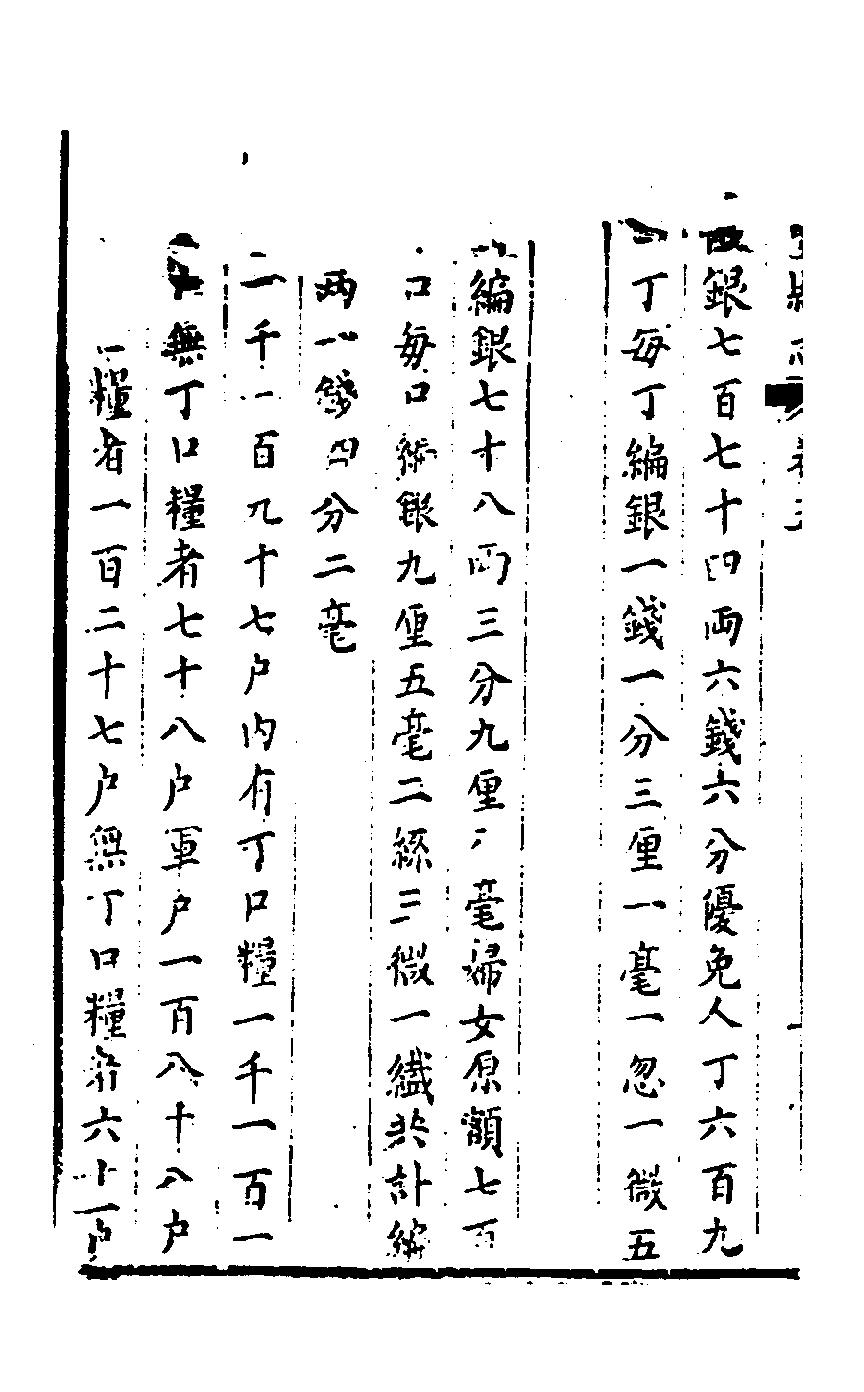 銀七百七十四両六錢六分優免人丁六百九
丁每丁編銀一錢一分三厘一毫一忽一微五
編銀七十八両三分九厘毫婦女原額七百
口每口編銀九厘五毫二絲三微一纎共計編
両一錢四分二毫
二千一百九十七户内有丁口糧一千一百一
無丁口糧者七十八户軍户一百八十八户
糧者一百二十七户無丁口糧者六十一户